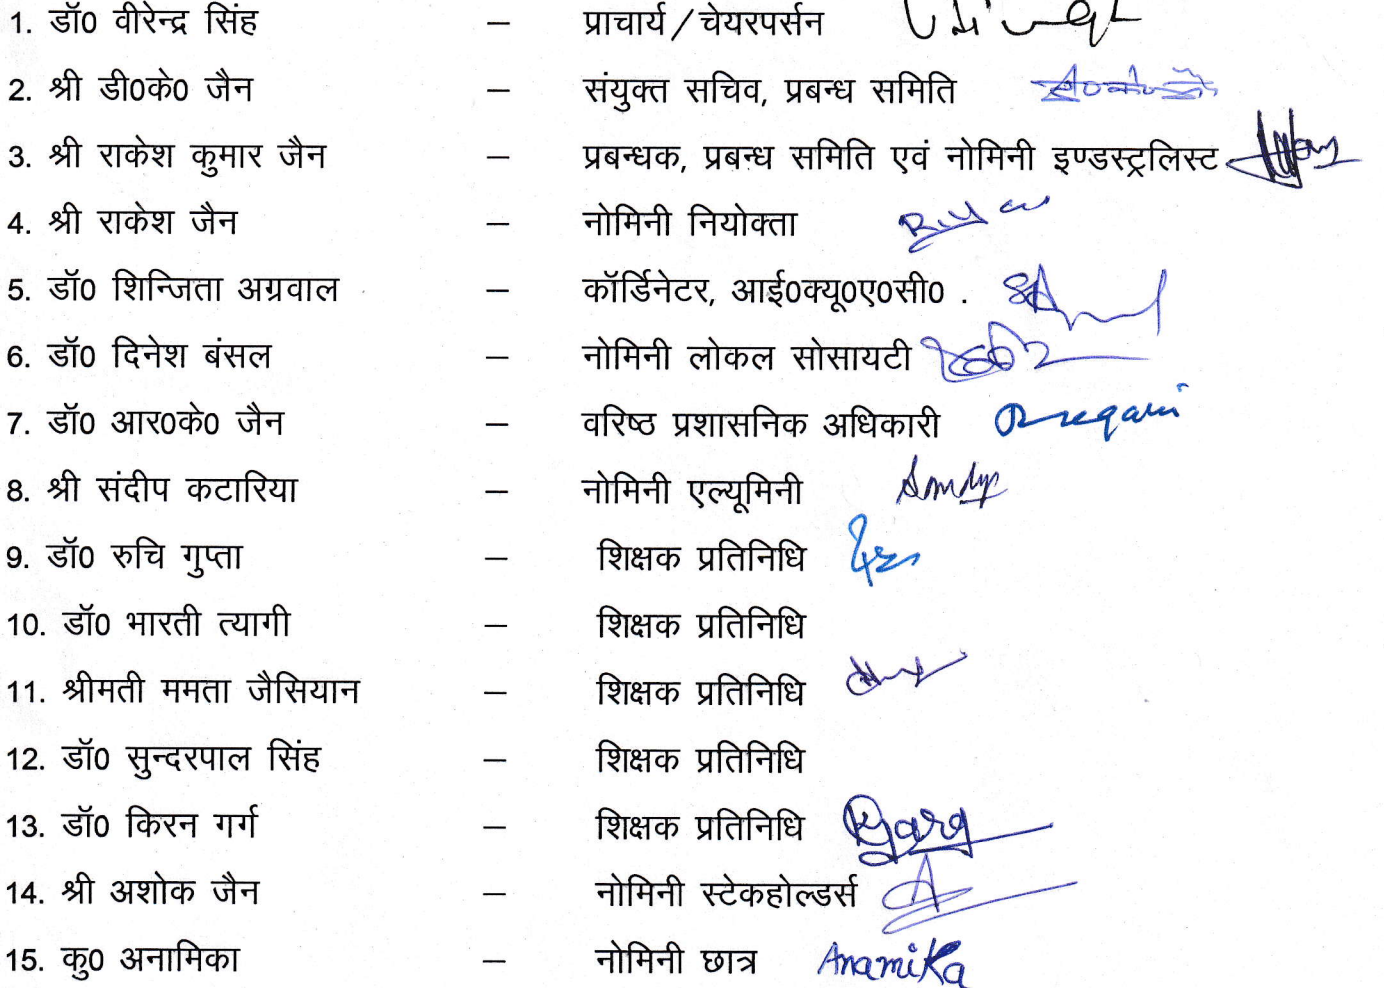 1. डॉ0 वीरेन्द्र सिंह – प्राचार्य/चेयरपर्सन
2. श्री डी0के0 जैन – संयुक्त सचिव, प्रबन्ध समिति
3. श्री राकेश कुमार जैन – प्रबन्धक, प्रबन्ध समिति एवं नोमिनी इण्डस्ट्रलिस्ट
4. श्री राकेश जैन – नोमिनी नियोक्ता
5. डॉ0 शिन्जिता अग्रवाल – कॉर्डिनेटर, आई0क्यू0ए0सी0 .
6. डॉ0 दिनेश बंसल – नोमिनी लोकल सोसायटी
7. डॉ0 आर0के0 जैन – वरिष्ठ प्रशासनिक अधिकारी
8. श्री संदीप कटारिया – नोमिनी एल्यूमिनी
9. डॉ0 रुचि गुप्ता – शिक्षक प्रतिनिधि
10. डॉ0 भारती त्यागी – शिक्षक प्रतिनिधि
11. श्रीमती ममता जैसियान – शिक्षक प्रतिनिधि
12. डॉ0 सुन्दरपाल सिंह – शिक्षक प्रतिनिधि
13. डॉ0 किरन गर्ग – शिक्षक प्रतिनिधि Kgarg
14. श्री अशोक जैन – नोमिनी स्टेकहोल्डर्स
15. कु0 अनामिका – नोमिनी छात्र Anamika